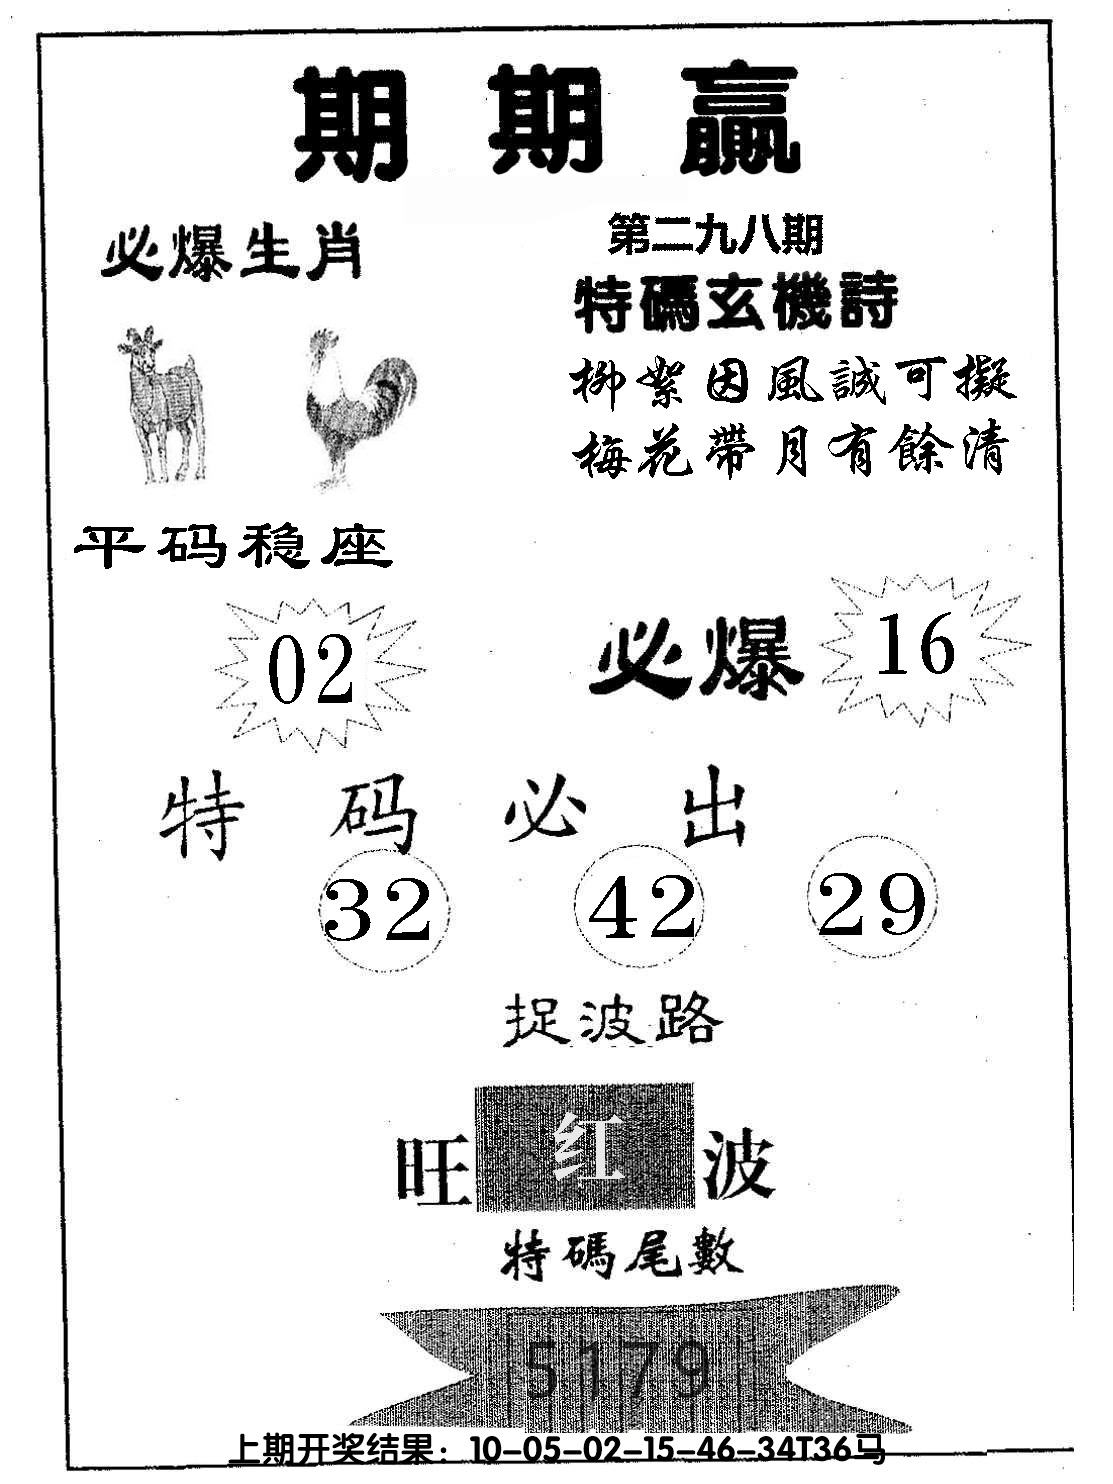 期期贏
必爆生肖
第二九八期
特碼玄機詩
柳絮因風誠可擬
梅花帶月有餘清
平码稳座
02
必爆 16
特码必出
32 42 29
捉波路
旺红波
特碼尾數
5179
上期开奖结果：10-05-02-15-46-34T36马